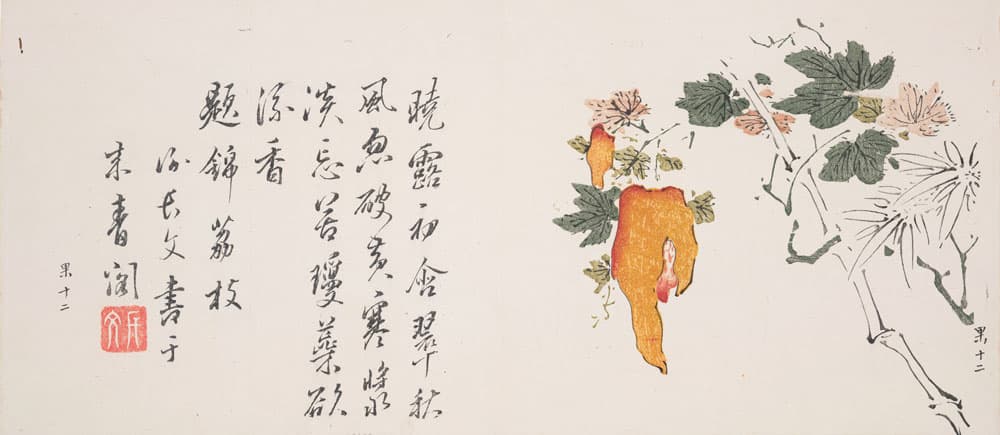 果十二
曉露初含翠秋
風忽破黃寒漿
淡忘苦瓊蘂欲
流香
題錦荔枝
長文書于
來青閣
果十二